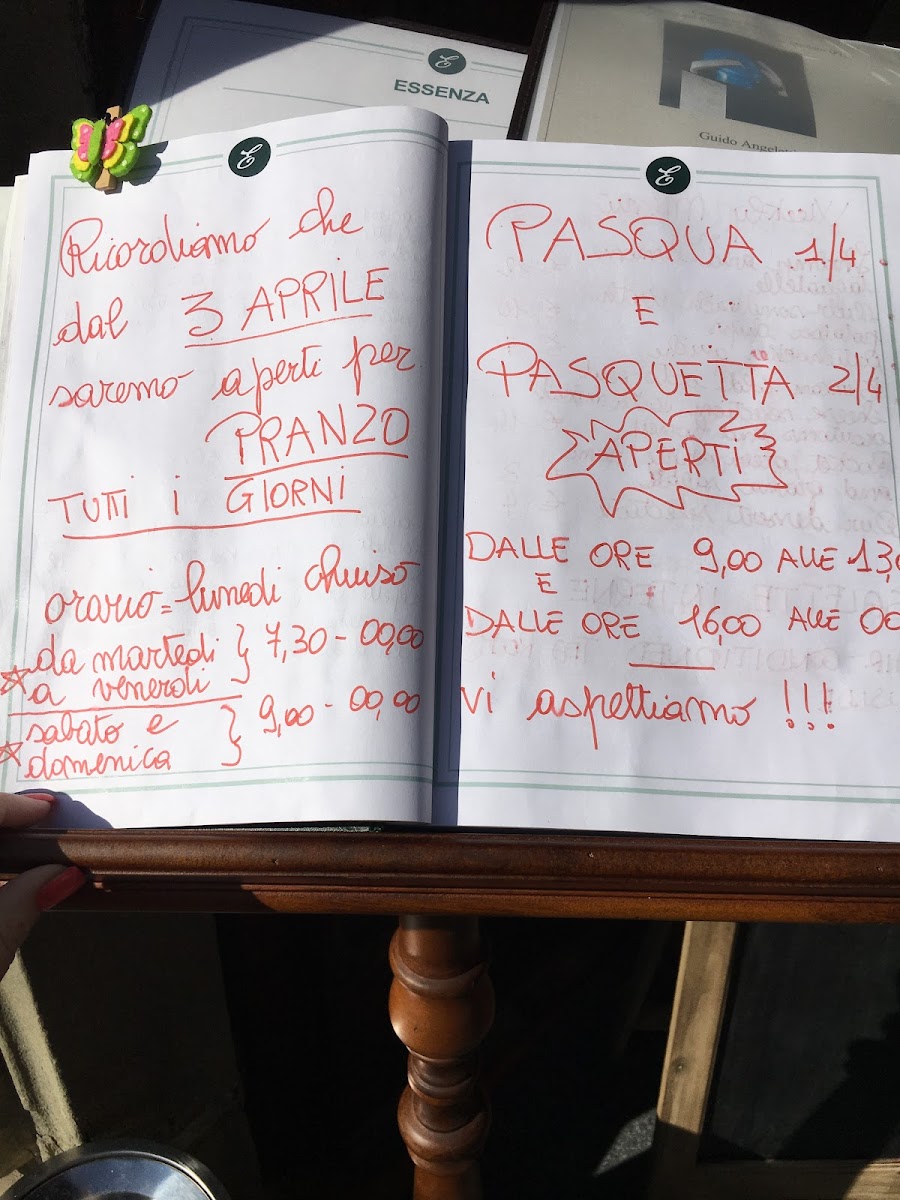 ESSENZA
Guido Angelet
Ricordiamo che
dal 3 APRILE
saremo aperti per
PRANZO
TUTTI i GIORNI
orario = lunedì chiuso
da martedì
a venerdì } 7,30 - 00,00
sabato e
domenica } 9,00 - 00,00
PASQUA 1/4
E
PASQUETTA 2/4
APERTi
DALLE ORE 9,00 ALLE 13,0
E
DALLE ORE 16,00 ALLE 00
vi aspettiamo !!!